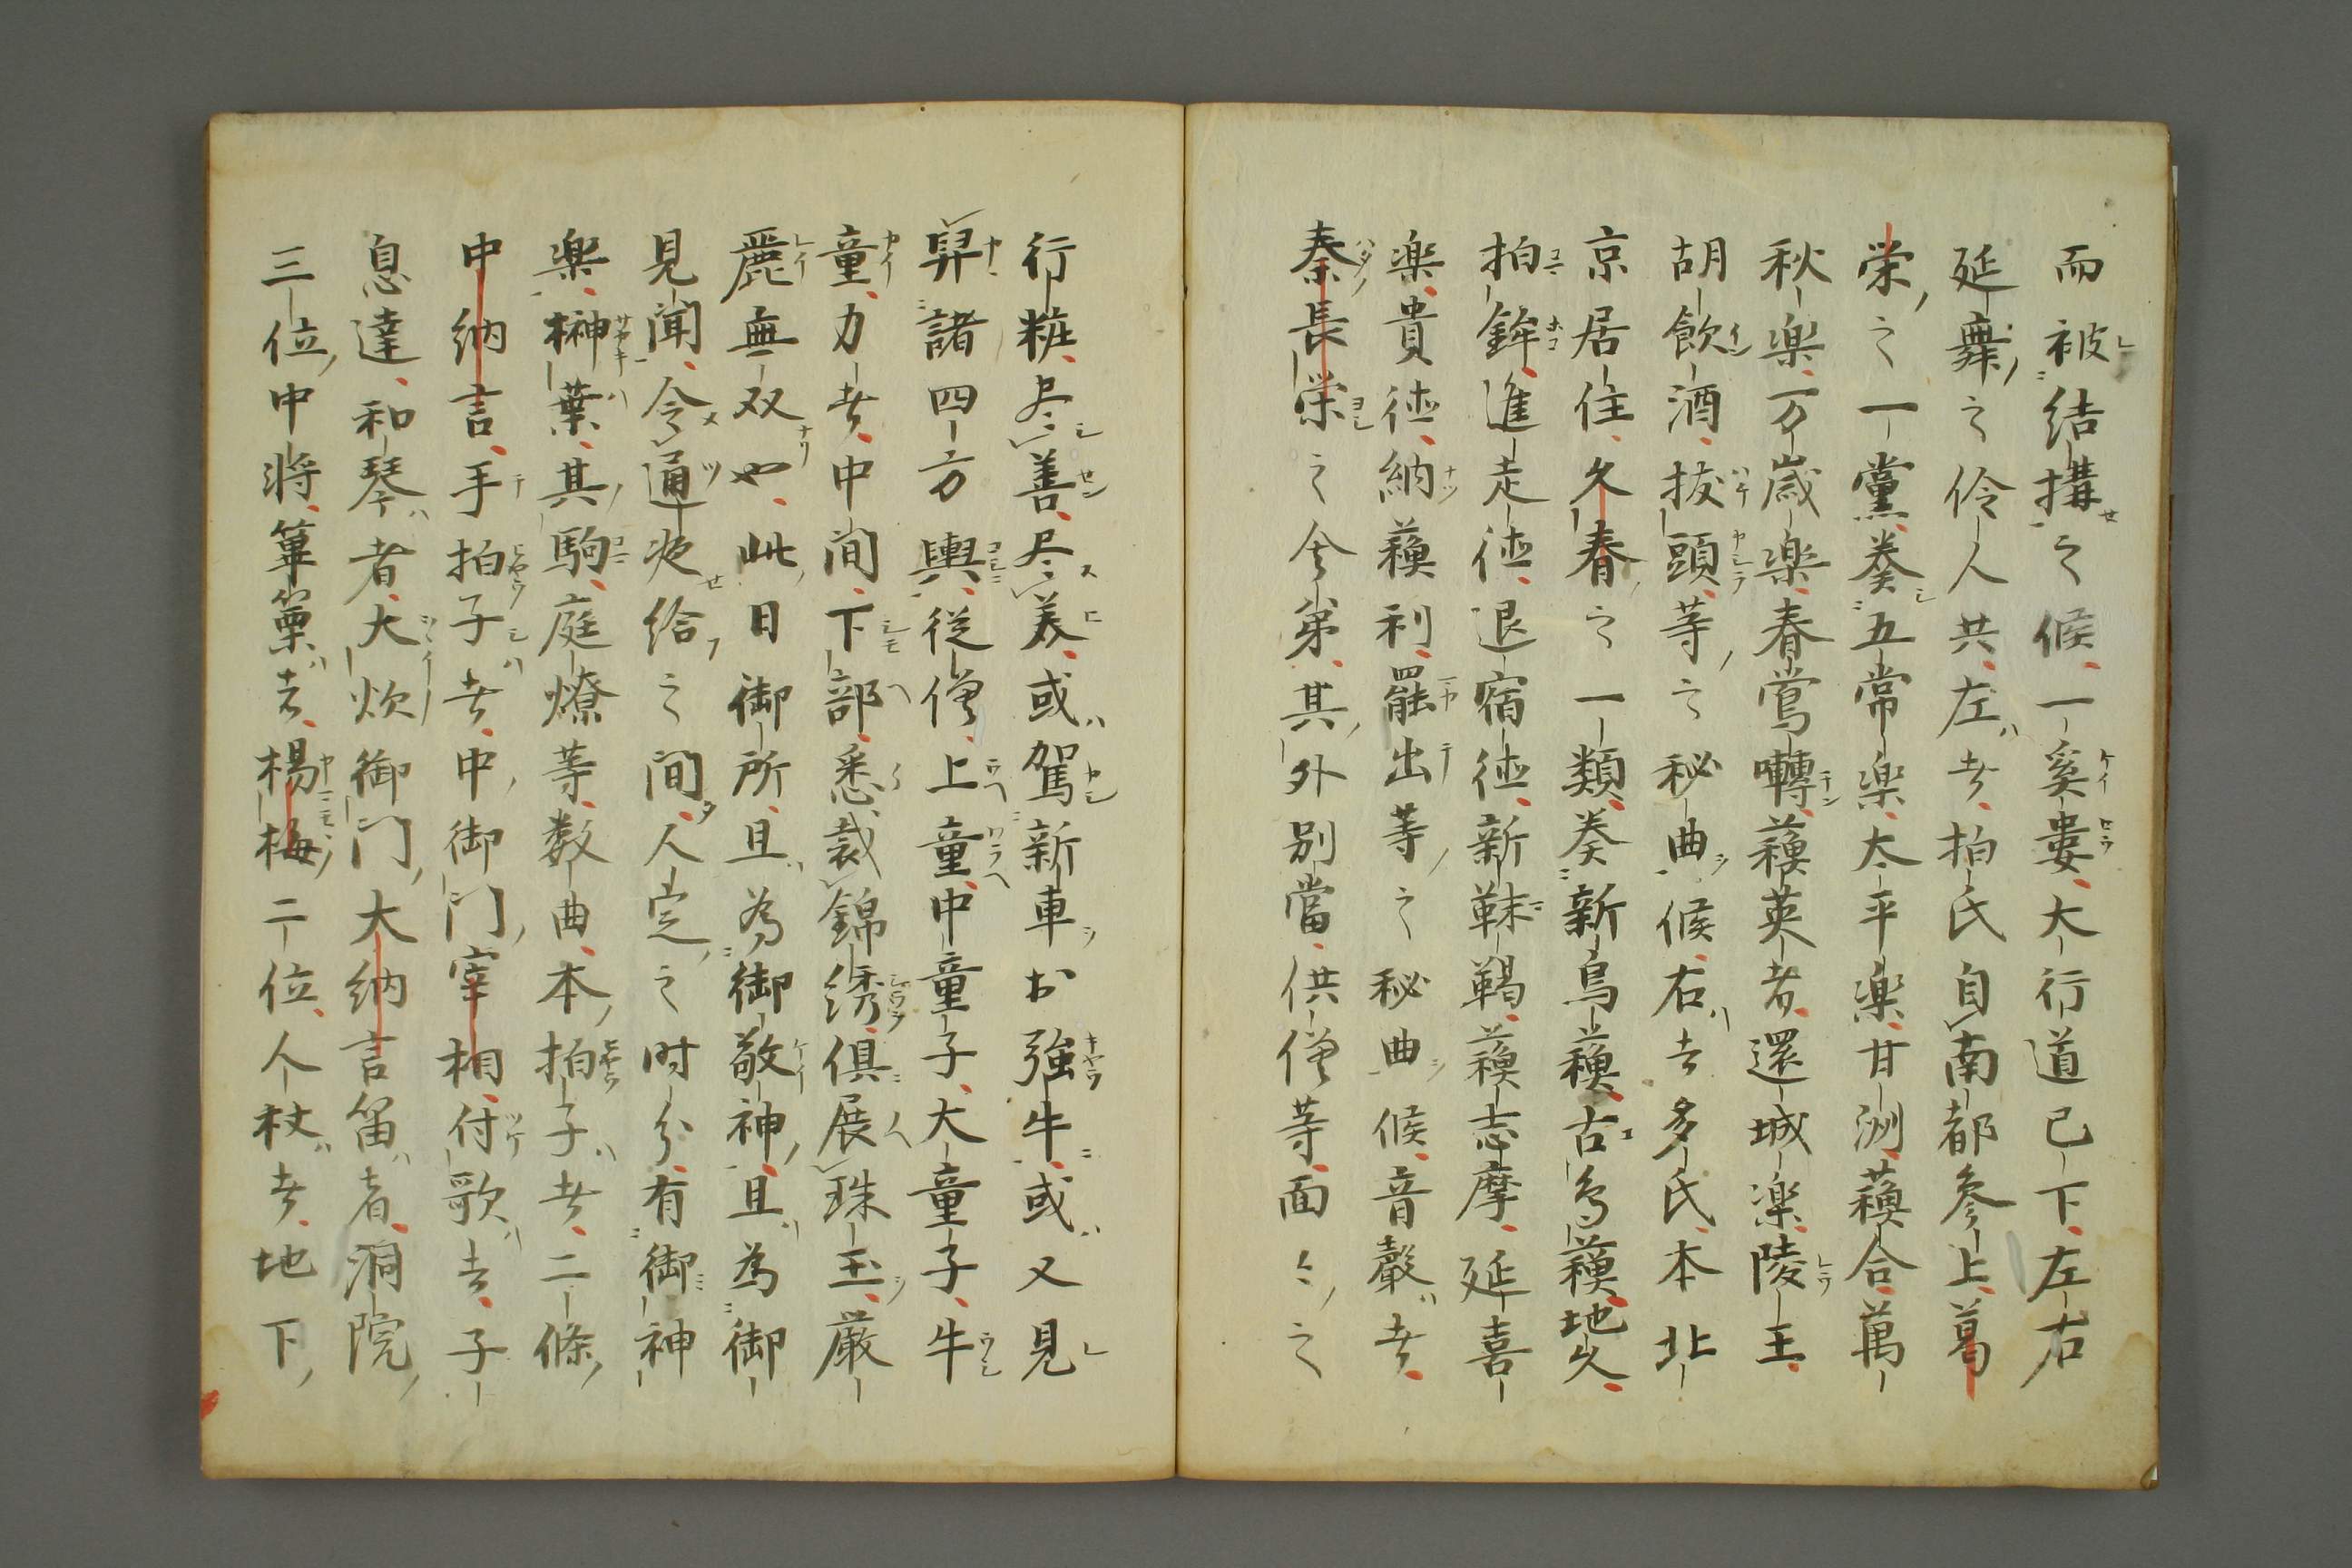 而被結搆之候、一奚婁、大行道已下、左右
延舞之伶人共、左者、拍氏自南都參上、葛
栄之一黨、奏五常楽、太平楽、甘洲、蘓合、萬
秋楽、万歳楽、春鴬囀、蘓英者、還城楽、陵王、
胡飲酒、抜頭、等之秘曲候、右者多氏、本北
京居住、久春之一類、奏新鳥蘓、古鳥蘓、地久、
拍鉾、進走徳、退宿徳、新靺鞨、蘓志摩、延喜
楽、貴徳、納蘓利、罷出等之秘曲候、音聲者、
秦長栄之舎弟、其外別當、供僧等、面々之
行粧、尽善、尽美、或駕新車於強牛、或又見
舁諸四方輿、従僧、上童、中童子、大童子、牛
童、力者、中間、下部、悉裁錦綉、倶展珠玉、厳
麗無双也、此日御所、且為御敬神、且為御
見聞、令通夜給之間、人定之时分、有御神
楽、榊葉、其駒、庭燎等、数曲、本拍子者、二條
中納言、手拍子者、中御門宰相、付歌者、子
息達、和琴者、大炊御門大納言笛者、洞院
三位中将、篳篥者、楊梅二位、人杖者、地下